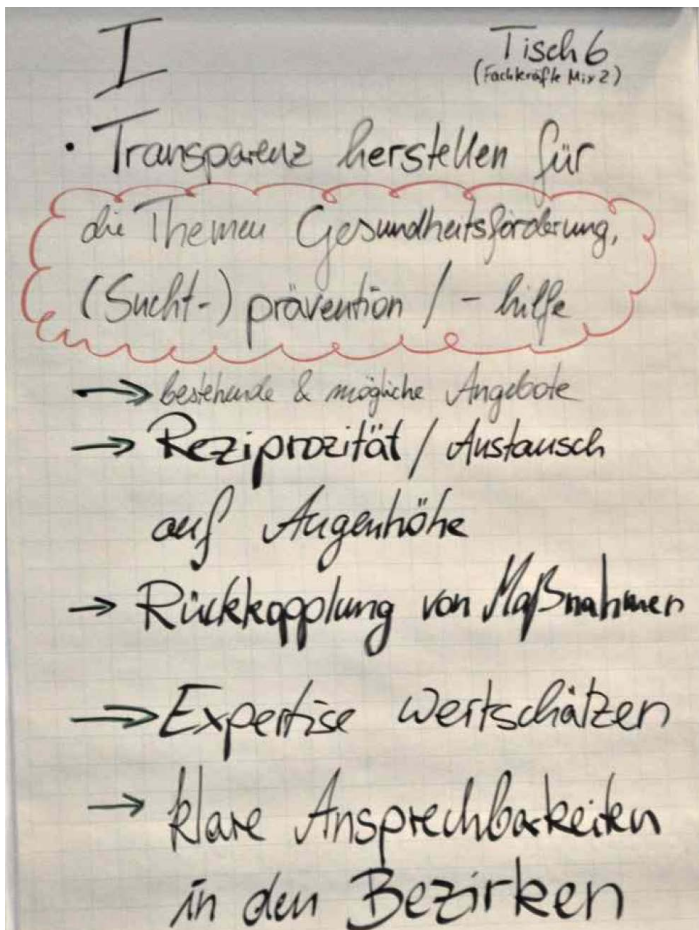 I
Tisch 6
(Fachkräfte Mix 2)
• Transparenz herstellen für
die Themen Gesundheitsförderung,
(Sucht-) prävention / - hilfe
→ bestehende & mögliche Angebote
→ Reziprozität / Austausch
auf Augenhöhe
→ Rückkopplung von Maßnahmen
→ Expertise wertschätzen
→ klare Ansprechbarkeiten
in den Bezirken